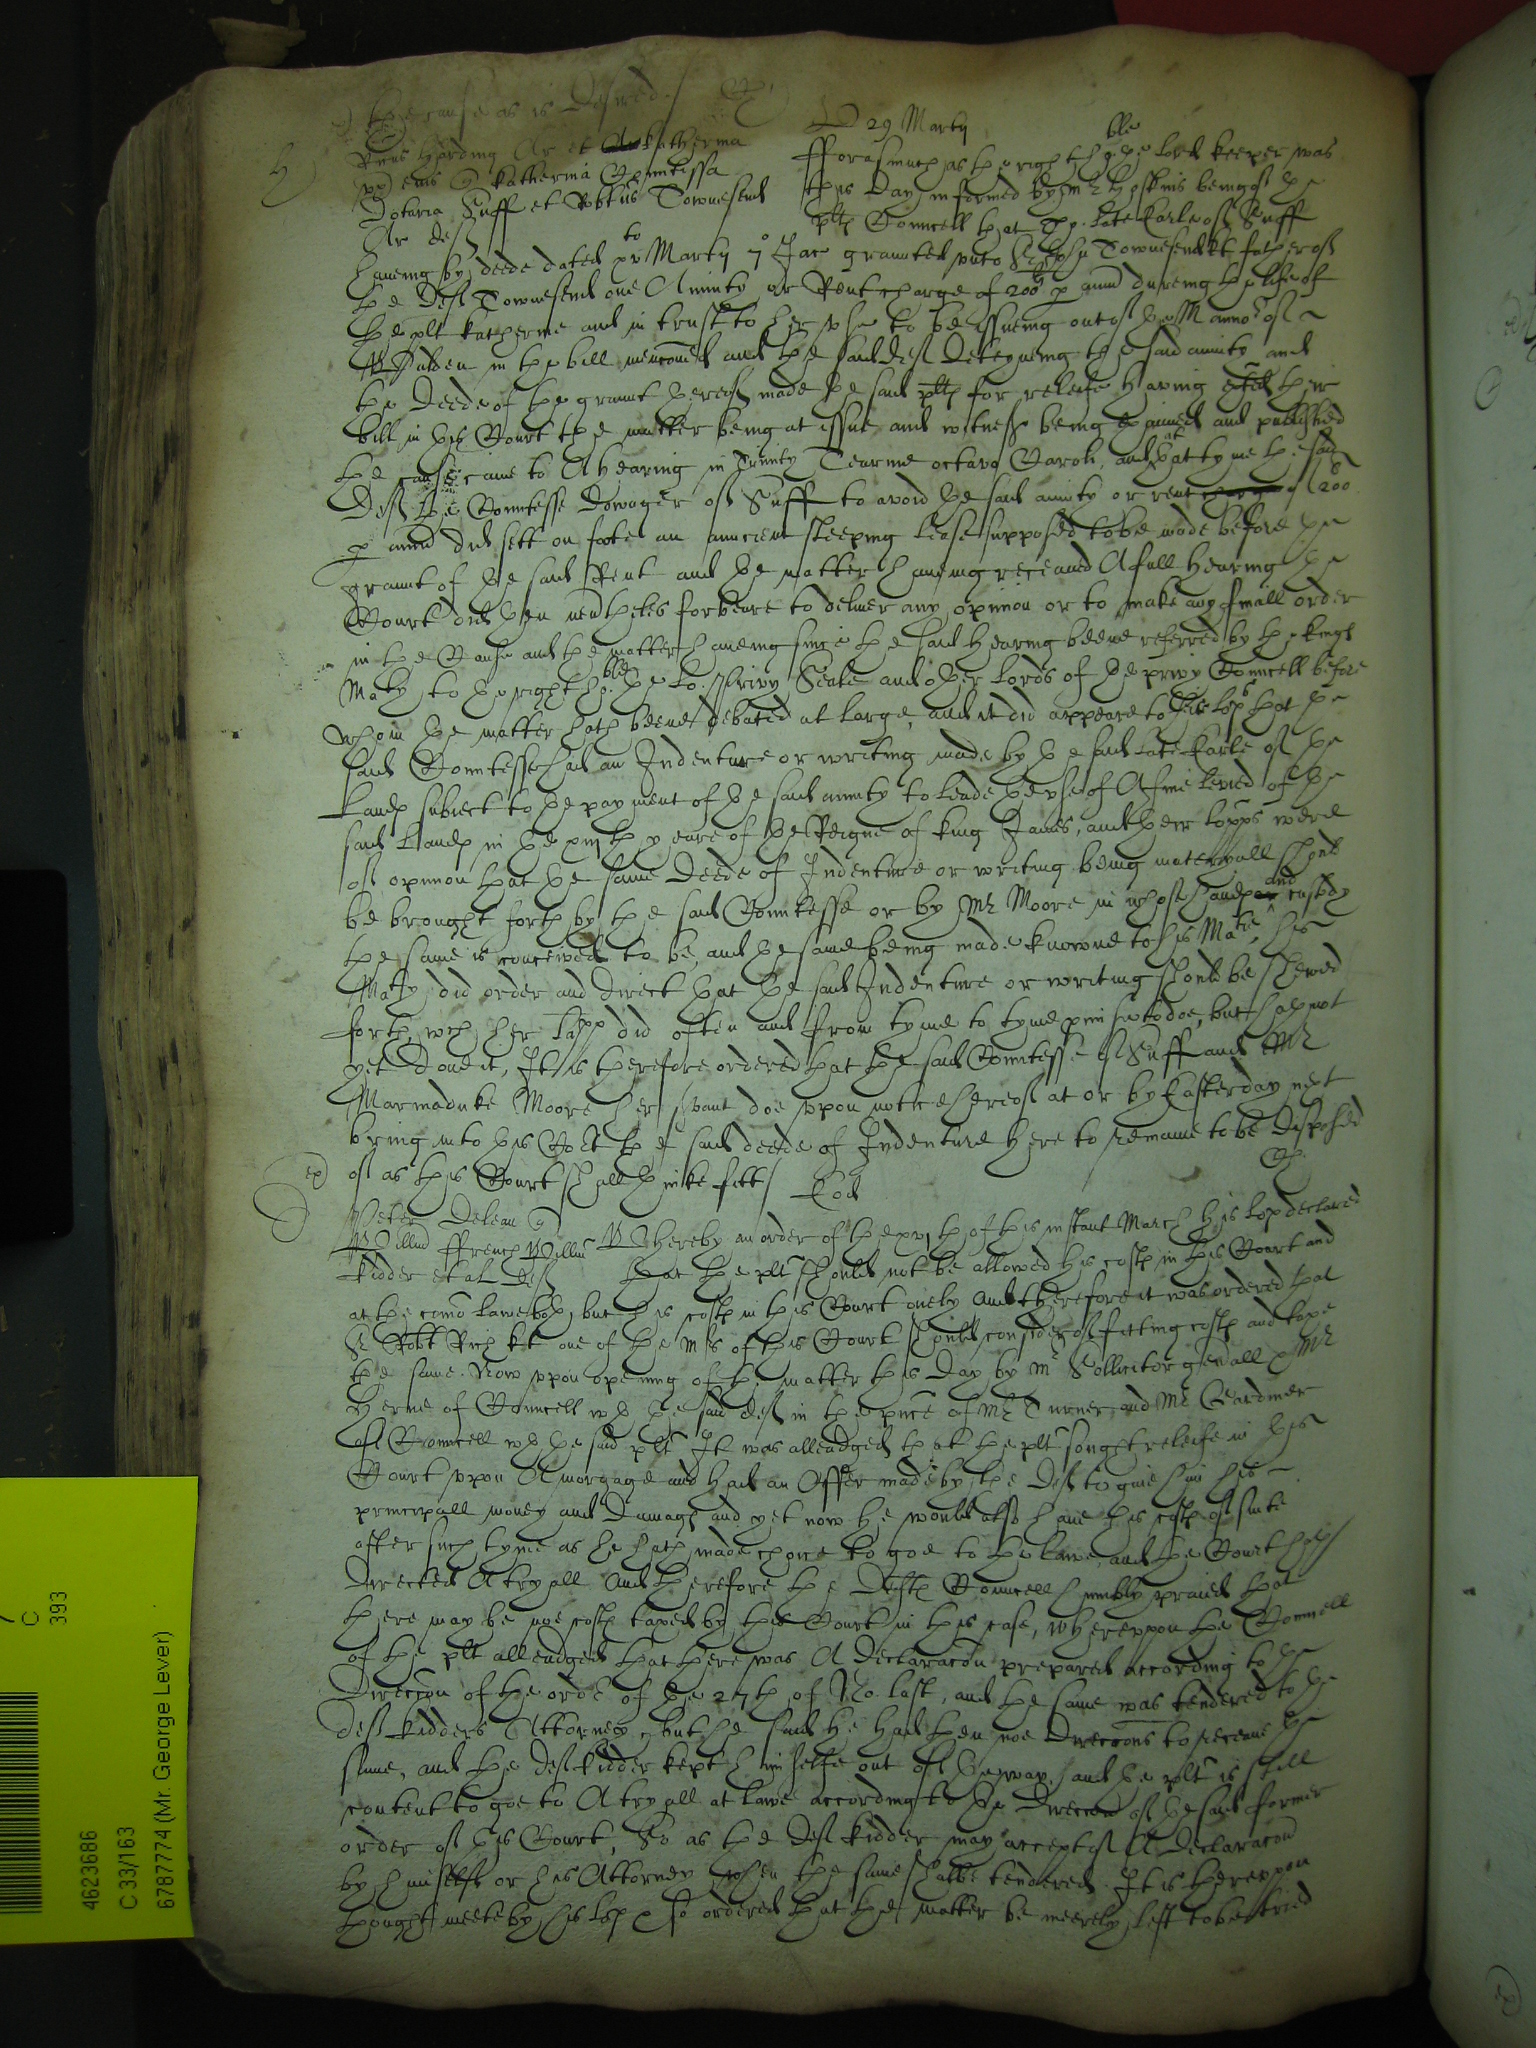 the cause as is desired /
D 29 Martij
H
Rous Harding Ar et Katherina
ux eius q Katherina Comitissa
Dotaria Suff et Robtus Townesend
Ar deft
Fforasmuch as the right ho:ble the lord keeper was
this day informed by Mr Hoskins being of the
plts Councell that the late Earle of Suff
haueing by deede dated xvto Martij 7o Jac graunted vnto Sr John Townesend kt father of
the deft Townesend one Anuity or Rent charge of 200li p annu dureing the life of
the plt Katherine and in trust to her vse to be issueing out of the Mannor of
Walden in the bill menconed and the said deft deteyneing the said anuity and
the Deede of the graunt thereof made the said plts for releife having exhited their
bill in this Court the matter being at issue and witnesses being examined and published
the cause came to A hearing in Trinity Tearme octavo Caroli, and at that tyme the said
Deft the Countesse Dowager of Suff to avoid the said anuity or rent charge of 200
p annu did sett on foote an auncient sleeping lease supposed to be made before the
graunt of the said Rent and the matter haueing receaued A full hearing the
Court did then neuthelesse forbeare to deliuer any opinion or to make any finall order
in the Cause and the matter haueing since the said hearing beene referred by the kings
Maty to the right ho:ble the Lo: Privy Seale and other Lords of the privy Councell before
whom the matter hath beene debated at large, and it did appeare to their Lops that the
said Countesse had an Indenture or writing made by the said late Earle of the
Lands subiect to the payment of the said anuity to leade the vse of A fine levied of the
said Lands in the xiijth yeare of the Reigne of King James, and their Lopps were
of opinion that the same Deede of Indenture or writing being materyall should
be brought forth by the said Countesse or by Mr Moore in whose hands and custody
the same is conceived to be, and the same being made knowne to his Matie, his
Maty did order and direct that the said Indenture or writing should be shewed
forth, wch her Lapp did often and from tyme to tyme pmise to doe, but hath not
yet done it, It is therefore ordered that the said Countesse of Suff and Mr
Marmaduke Moore her servant doe vpon notice hereof at or by Easterday next
bring into this Court the said deede of Indenture here to remaine to be disposed
of as this Court shall thinke fitt / Eod
Peter Deleau q
Willm Ffrench Willm
Kidder et al deft
Whereby an order of the xvjth of this instant March his Lop declared
that the plt should not be allowed his costs in this Court and
at the comon lawe both, but his costs in this Court onely And therefore it was ordered that
Sr Robt Rich kt one of the Mrs of this Court should consider of fitting costs and taxe
the same. Now vpon opening of the matter this day by Mr Sollicitor genall & Mr
Herne of Councell wth the said deft in the pnce of Mr Turner and Mr Gardiner
of Councell wth the said plt It was alleadged that the plt sought releife in this
Court vpon A morgage and had an Offer made by the Deft to giue him his
principall money and Damags and yet now he would also haue his costs of suite
after such tyme as he hath made choice to goe to the lawe, and the Court hath
directed A tryall And therefore the Defts Councell humbly praied that
there may be noe costs taxed by this Court in this case, Wherevpon the Councell
of the plt alleadged that there was A declaracon prepared according to the
direccon of the order of the 27th of No: last, and the same was tendered to the
deft Kidders Attorney, but he said he had then noe direccons to receaue the
same, and the deft Kidder kept himselfe out of the way, and the plt is still
content to goe to A tryall at lawe according to the direccon of the said former
order of this Court, So as the deft Kidder may accept of A declaracon
by himselfe or his Attorney when the same shalbe tendered. It is therevpon
thought meete by his Lop & so ordered that the matter be meerely left to be tried
C
393
4623686
C 33/163
6787774 (Mr. George Lever)